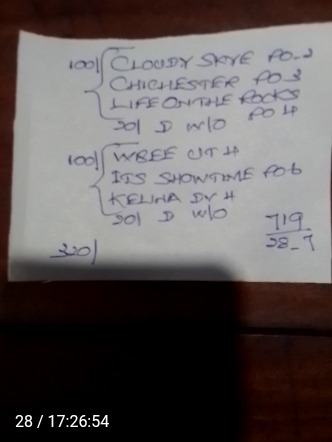 100/ CLOUDY SKYE PO-2
CHICHESTER PO 3
LIFE ON THE ROCKS
PO 4
20/ D W/O
100/ WBEE UT 4
ITS SHOWTIME PO 6
KELINA DV 4
20/ D W/O
320/
719
28-7
28 / 17:26:54